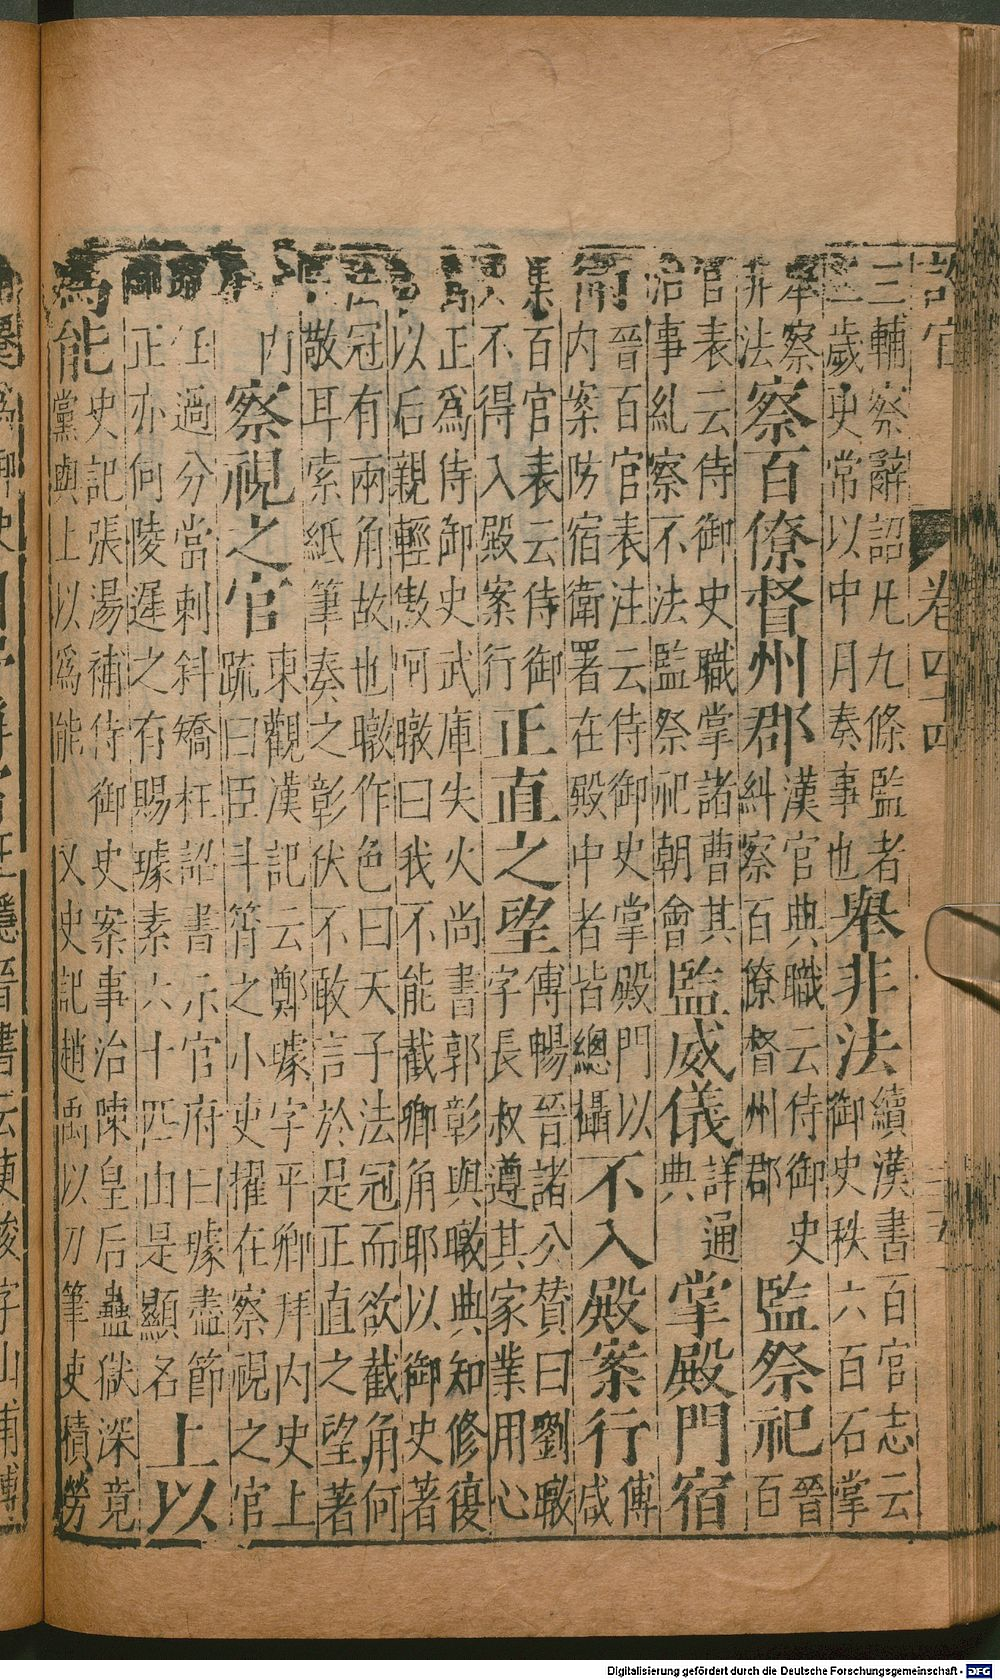 設官 卷四四
三輔察辭詔凡九條監者
二歲更常以中月奏事也
舉非法
續漢書百官志云
御史秩六百石掌
舉察
非法
察百僚督州郡
漢官典職云侍御史
糾察百僚督州郡
監祭祀
晉
百
官表云侍御史職掌諸曹其
治事糺察不法監祭祀朝會
監威儀
詳通
典
掌殿門宿
晉百官表注云侍御史掌殿門以
內案防宿衛署在殿中者皆總攝
不入殿案行
傅
咸
集百官表云侍御
史不得入殿案行
正直之望
傅暢晉諸公贊曰劉暾
字長叔遵其家業用心
正為侍御史武庫失火尚書郭彰與暾典知修復
以后親輕傲呵暾曰我不能截卿角耶以御史著
冠有兩角故也暾作色曰天子法冠而欲截角何
敢耳索紙筆奏之彰伏不敢言於是正直之望著
內
察視之官
東觀漢記云鄭璩字平卿拜內史上
疏曰臣斗筲之小吏擢在察視之官
任過分當刺斜矯枉詔書示官府曰璩盡節
正亦何陵遲之有賜璩素六十匹由是顯名
上以
為能
史記張湯補侍御史案事治陳皇后蠱獄深竟
黨與上以為能 又史記趙禹以刀筆吏積勞
遷為御史
隱晉書云庾峻字山甫博
Digitalisierung gefördert durch die Deutsche Forschungsgemeinschaft - DFG